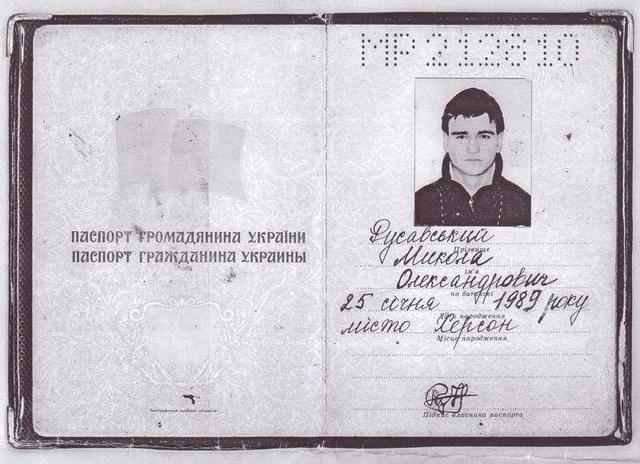 МР212810
ПАСПОРТ ГРОМАДЯНИНА УКРАЇНИ
ПАСПОРТ ГРАЖДАНИНА УКРАИНЫ
Русавський
Прізвище
Микола
ім'я
Олександрович
по батькові
25 січня 1989 року
Дата народження
місто Херсон
Місце народження
Підпис власника паспорта